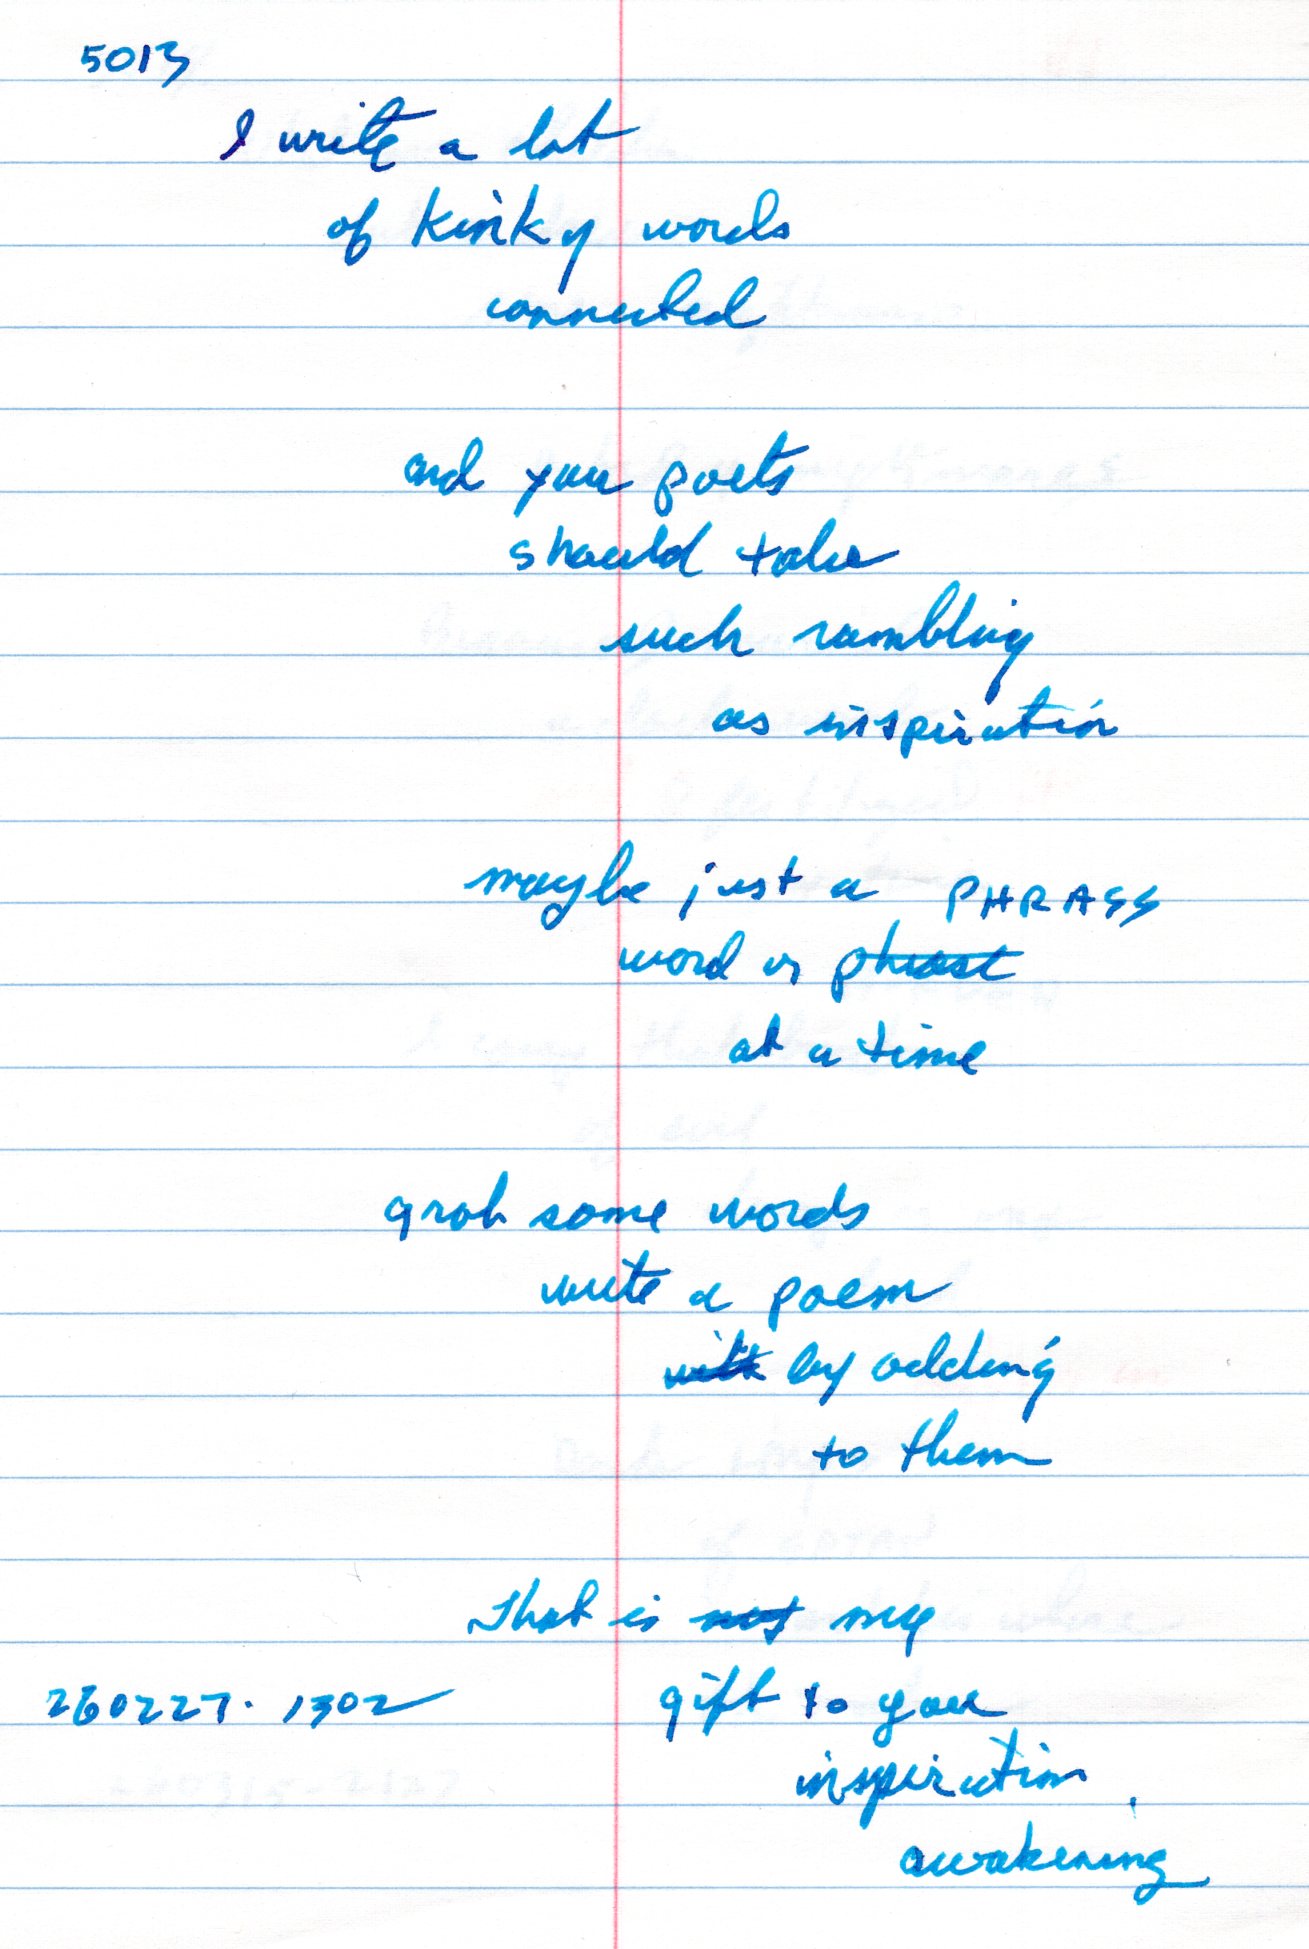 5013
I write a lot
of kinky words
connected
and you poets
should take
such rambling
as inspiration
maybe just a PHRASE
word or phrase
at a time
grab some words
write a poem
with by adding
to them
That is not my
260227. 1302 gift to you
inspiration.
awakening